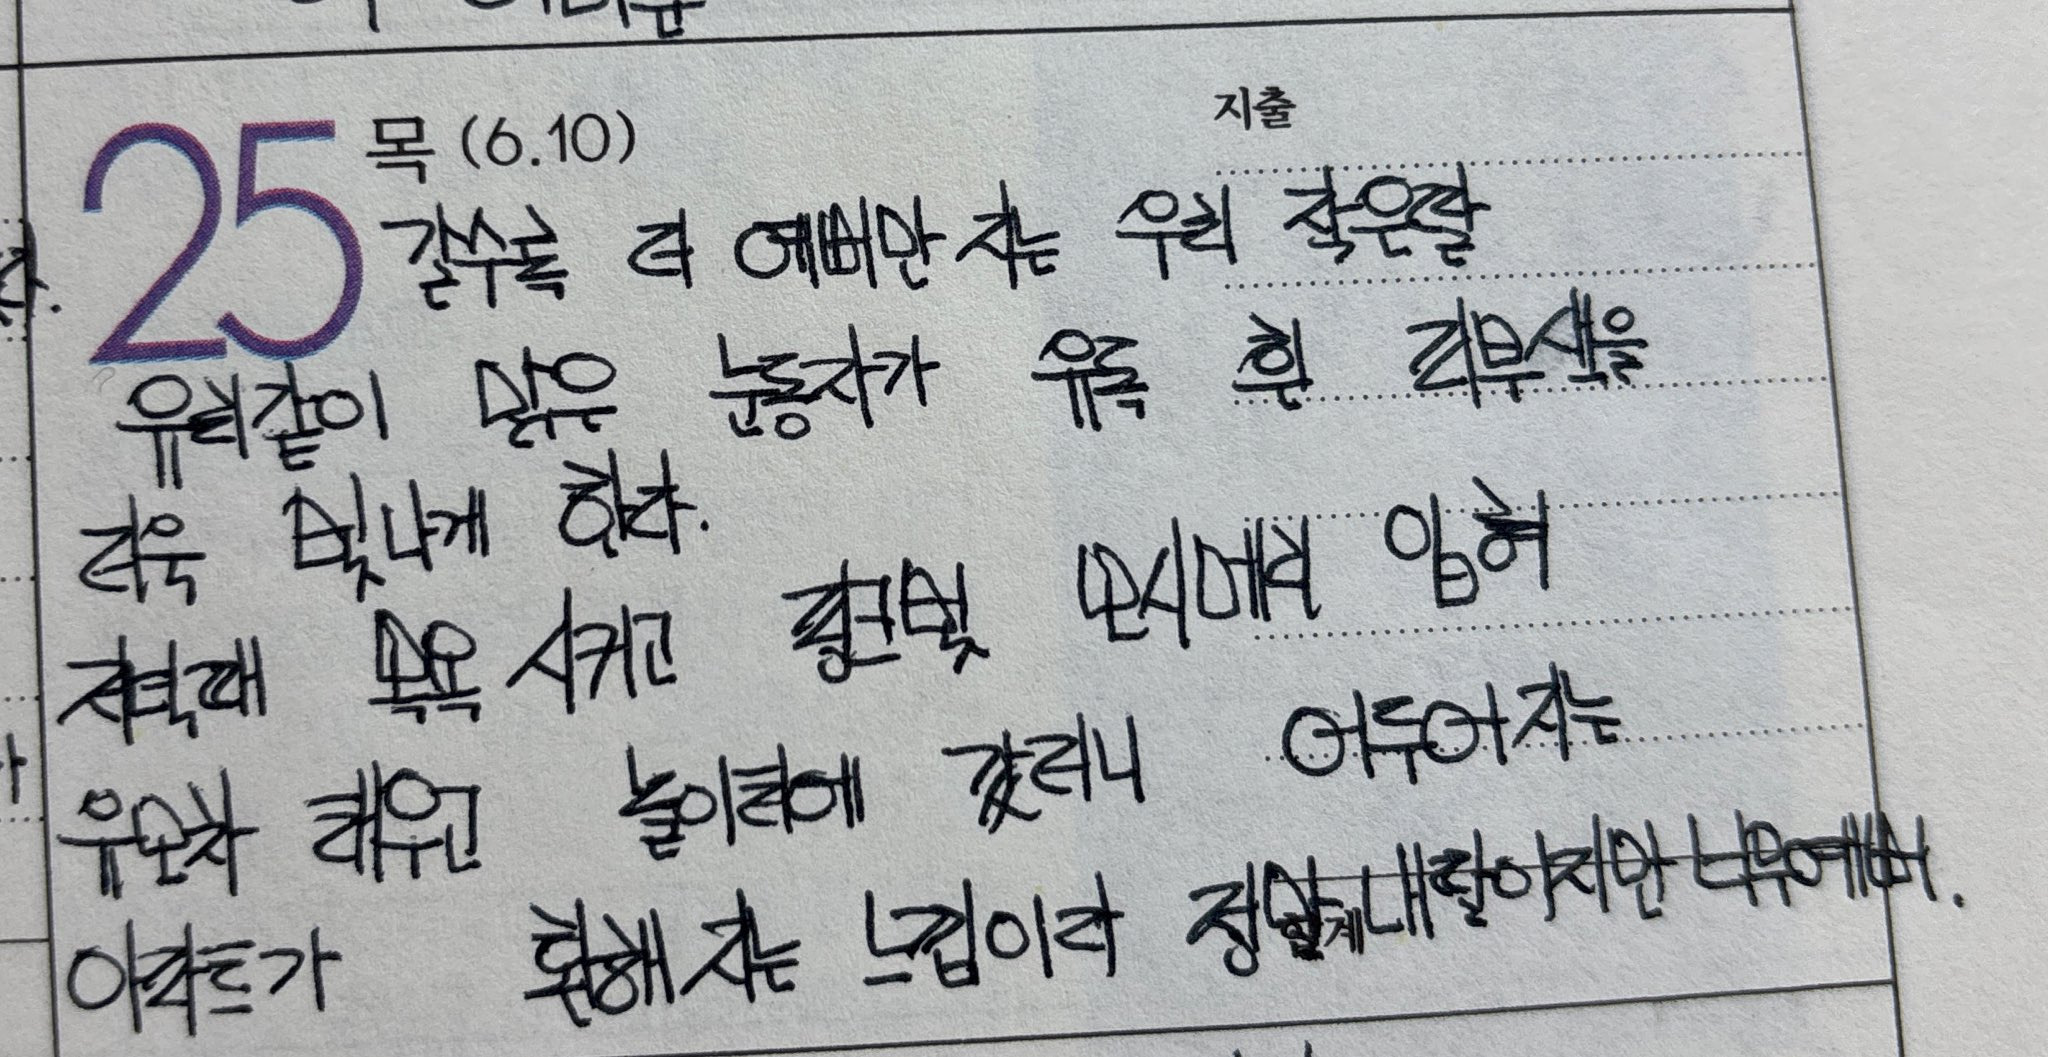 25 목 (6.10)
지출
갈수록 더 예뻐만 지는 우리 작은딸
유리같이 맑은 눈동자가 유독 흰 피부색을
더욱 빛나게 한다.
저녁때 목욕 시키고 핑크빛 모시메리 입혀
유모차 태우고 놀이터에 갔더니 어두어 지는
아파트가 환해 지는 느낌이다 정말 내 딸이지만 너무 예뻐.
합계